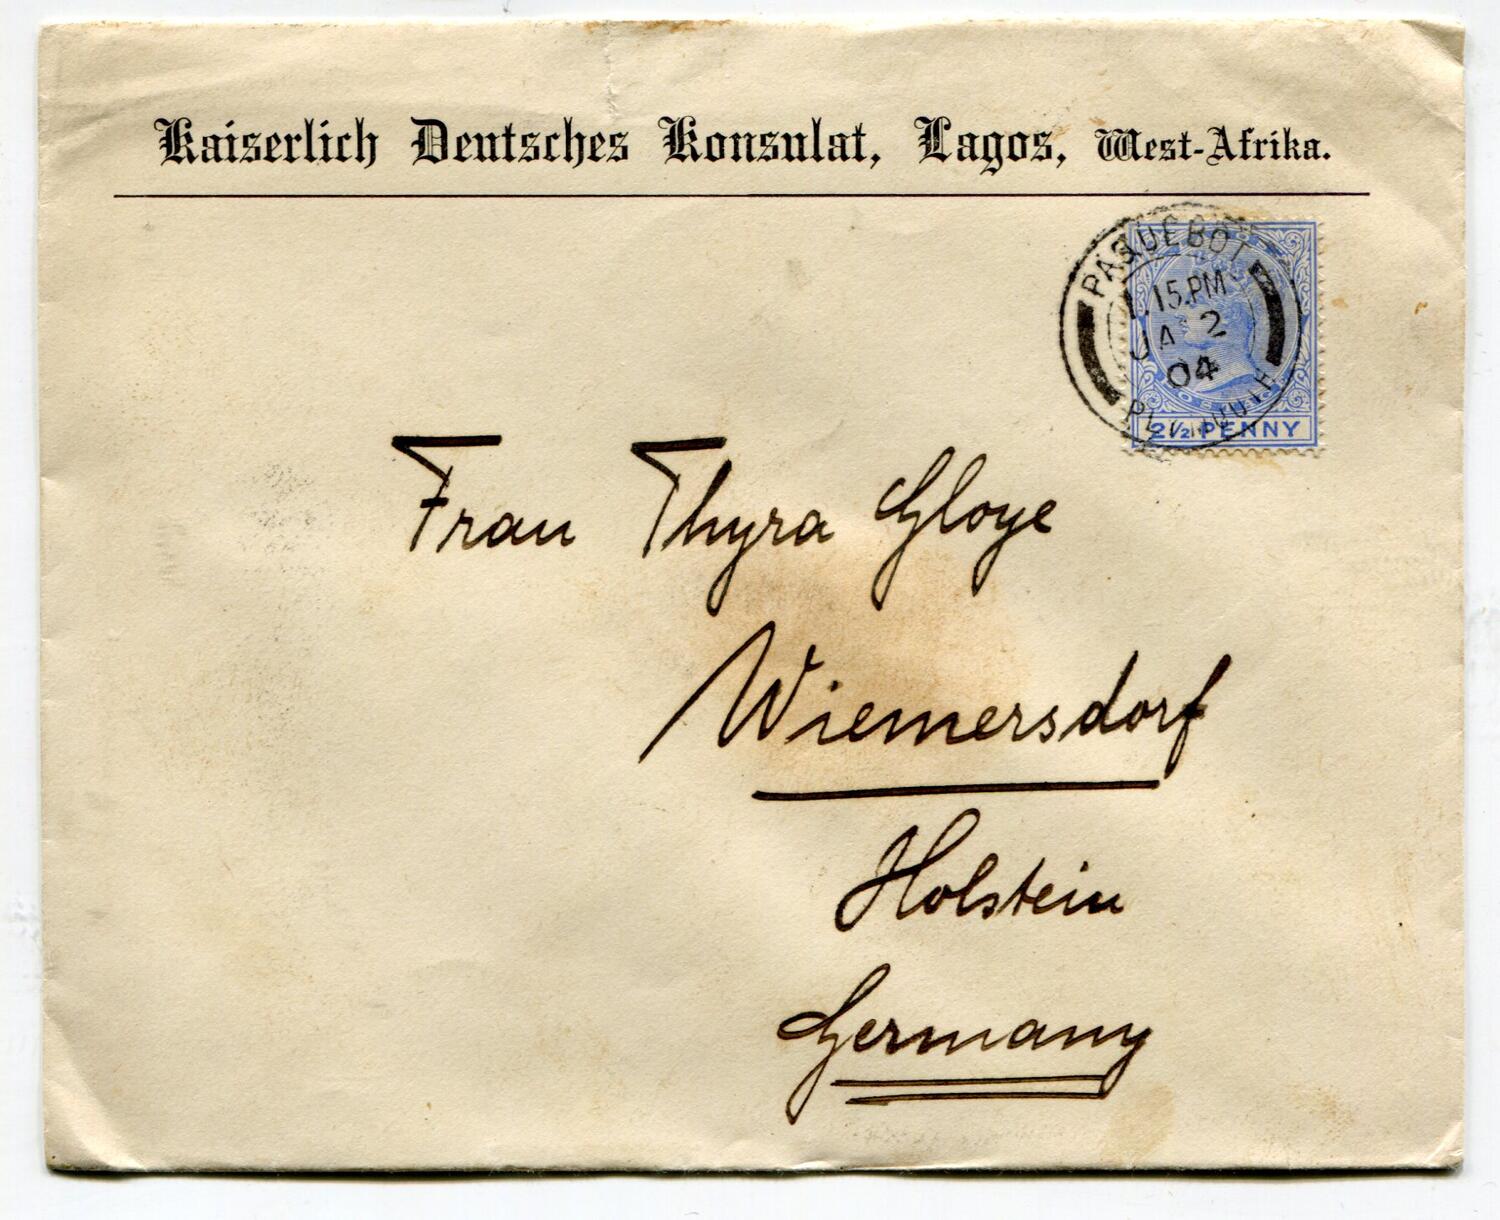 Kaiserlich Deutsches Konsulat, Lagos, West-Afrika.
PAQUEBOT
1.15.PM
JA 2
04
PLYMOUTH
2½ PENNY
Frau Thyra Gloye
Wiemersdorf
Holstein
Germany